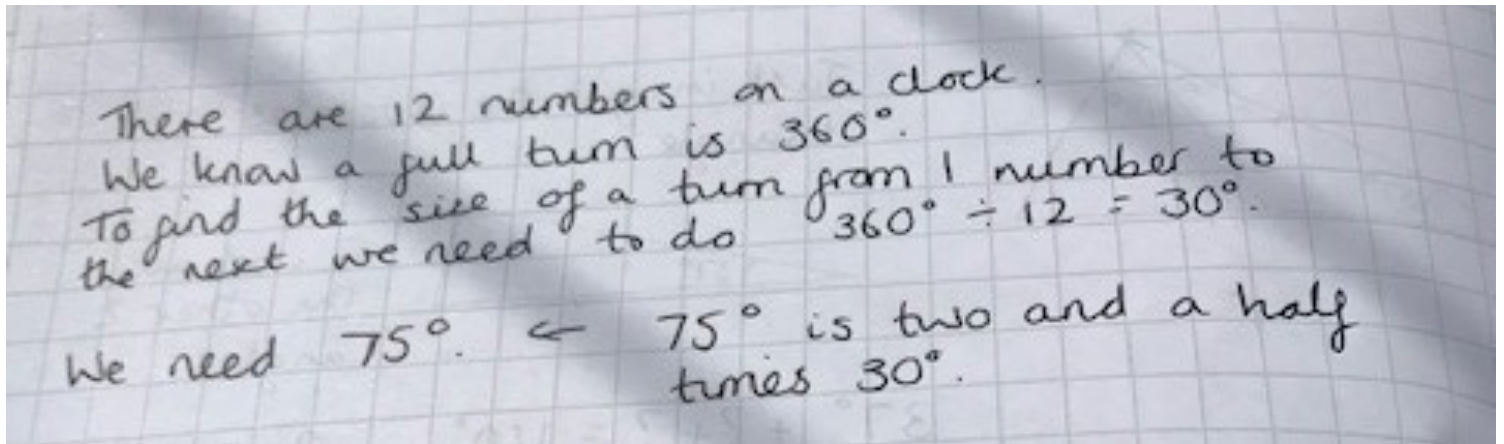 There are 12 numbers on a clock.
We know a full turn is 360°.
To find the size of a turn from 1 number to
the next we need to do 360° ÷ 12 = 30°.
We need 75°. ← 75° is two and a half
times 30°.